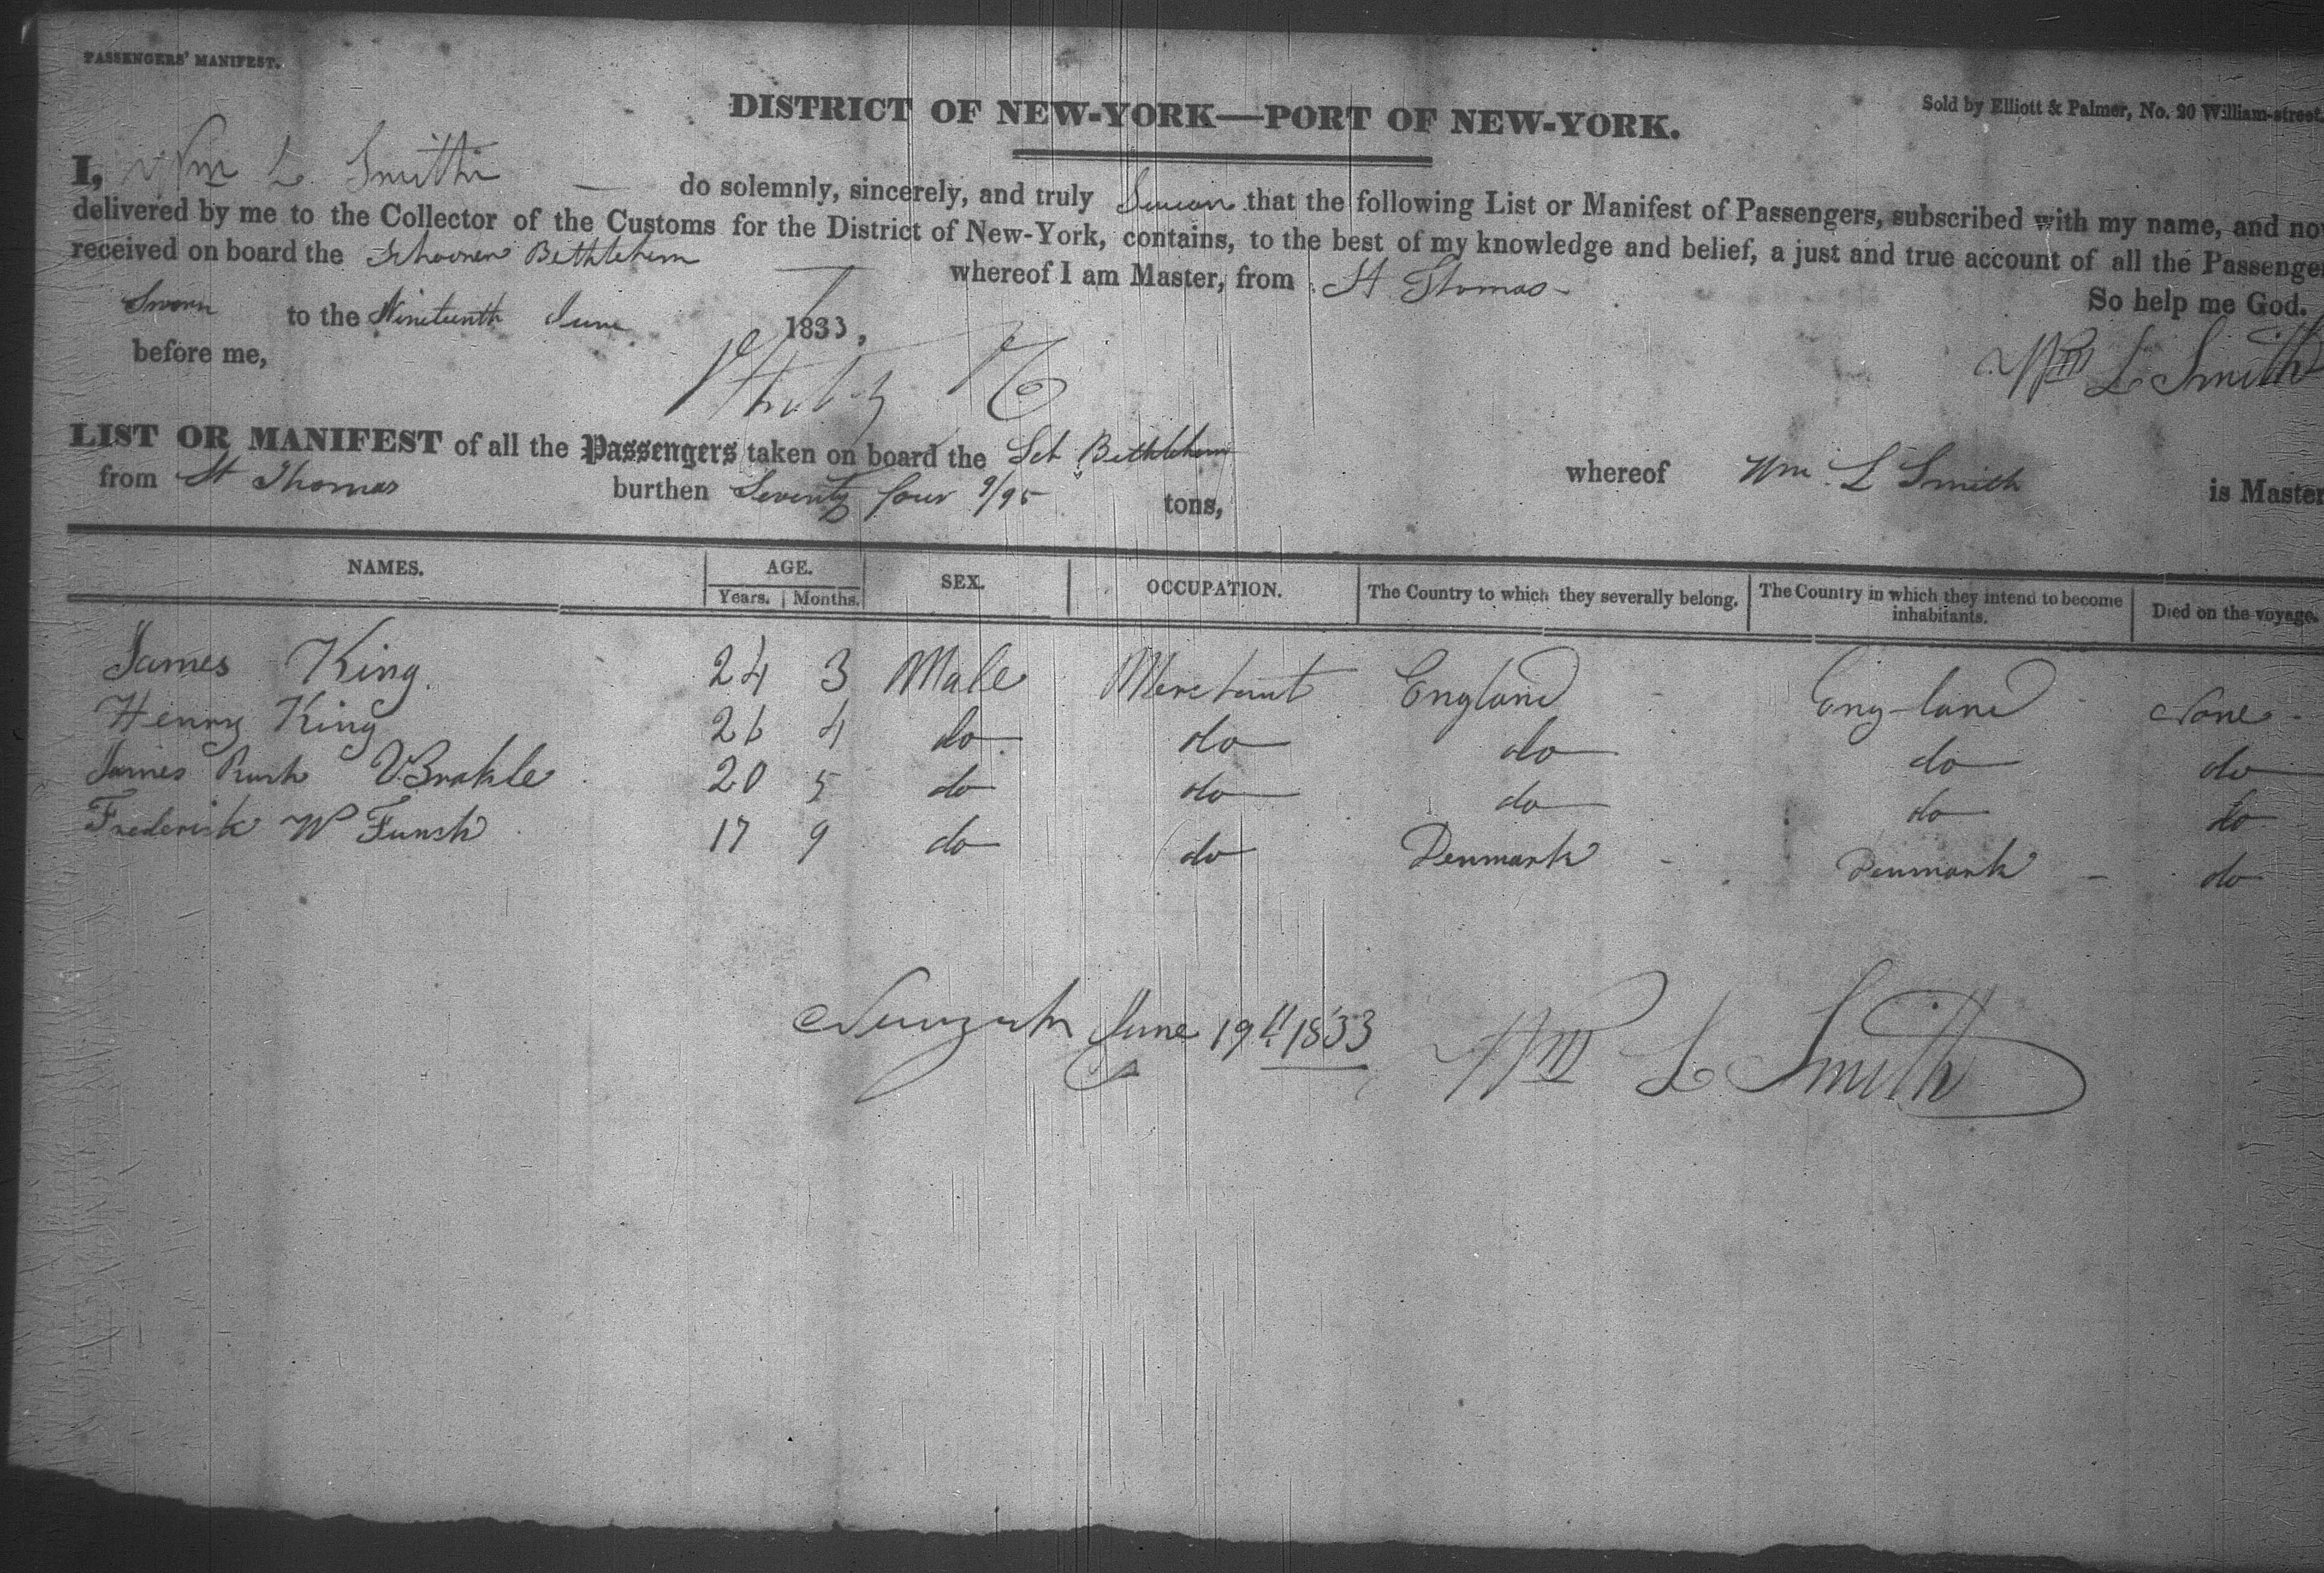 PASSENGERS' MANIFEST.
DISTRICT OF NEW-YORK—PORT OF NEW-YORK.
Sold by Elliott & Palmer, No. 20 William-street.
I, Wm L. Smith — do solemnly, sincerely, and truly Swear that the following List or Manifest of Passengers, subscribed with my name, and now
delivered by me to the Collector of the Customs for the District of New-York, contains, to the best of my knowledge and belief, a just and true account of all the Passenger
received on board the Schooner Bethlehem whereof I am Master, from St Thomas -
So help me God.
Sworn to the Nineteenth June 1833,
before me,
Wm L Smith
LIST OR MANIFEST of all the Passengers taken on board the Sch Bethlehem whereof Wm. L Smith is Master
from St Thomas burthen Seventy four 9/95 tons,
NAMES. AGE. SEX. OCCUPATION. The Country to which they severally belong. The Country in which they intend to become inhabitants. Died on the voyage.
Years. Months.
James King. 24 3 Male Merchant England - England - None -
Henry King 26 4 do do do do do
James V.Brakle 20 5 do do do do do
Frederick W Funsh 17 9 do do Denmark - Denmark - do
Newyork June 19th 1833 Wm L Smith